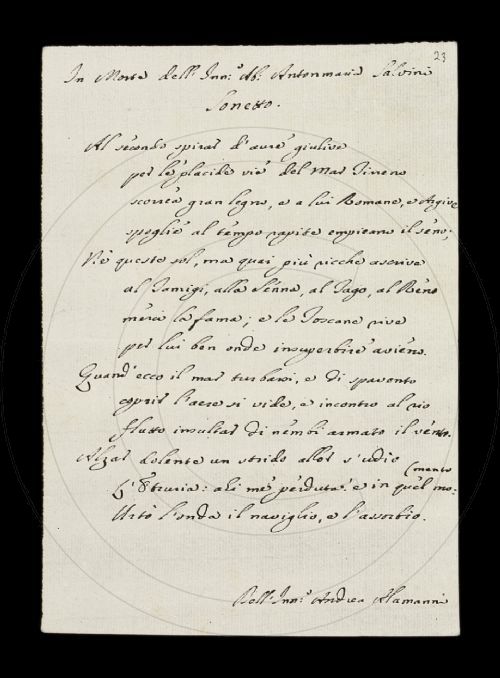 23
In Morte dell' Inn:º Ab: Antonmaria Salvini
Sonetto.
Al secondo spirar d'aure giulive
per le placide vie del Mar Tirreno
scorrea gran legno, e a lui Romane, e Argive
spoglie al tempo rapite empieano il seno;
Ne queste sol, ma quai più ricche ascrive
al Tamigi, alla Senna, al Tago, al Reno
merci la fama; e le Toscane rive
per lui ben onde insuperbire avieno.
Quand' ecco il mar turbarsi, e di spavento
coprir l'aere si vide, e incontro al rio
flutto insultar di nembi armato il vento.
Alzar dolente un strido allor s'udio
(mento
L'Etruria: ahi me perduta! e in quel mo:
Urtò l'onda il naviglio, e l'assorbio.
Dell' Inn:º Andrea Alamanni